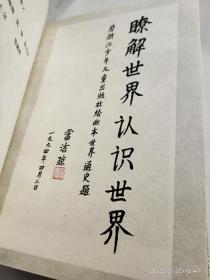 瞭解世界认识世界
为浙江少年儿童出版社绘画本世界通史题
雷洁琼
一九九四年四月三日